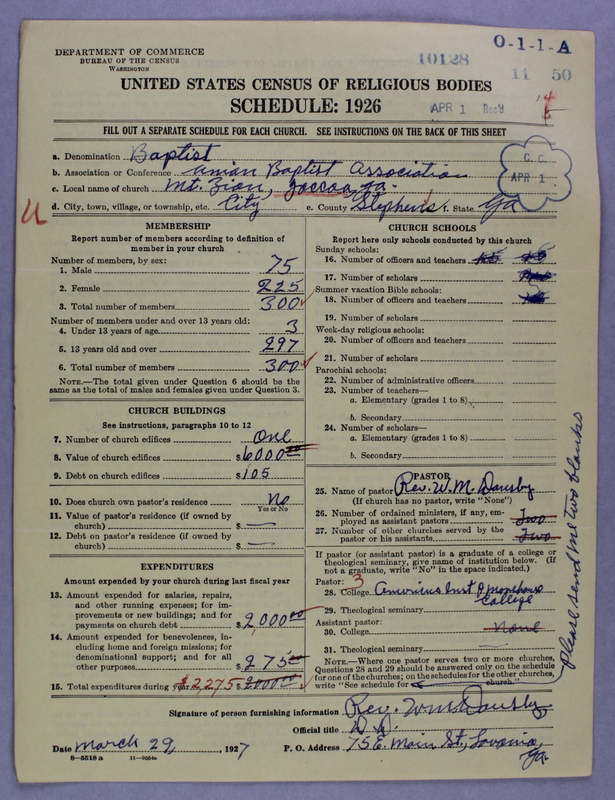 DEPARTMENT OF COMMERCE
BUREAU OF THE CENSUS
WASHINGTON
10128
O-1-1-A
11 50
UNITED STATES CENSUS OF RELIGIOUS BODIES
SCHEDULE: 1926
APR 1 Rec'd
FILL OUT A SEPARATE SCHEDULE FOR EACH CHURCH. SEE INSTRUCTIONS ON THE BACK OF THIS SHEET
a. Denomination Baptist
b. Association or Conference Union Baptist Association
c. Local name of church Mt. Zion, Toccoa, Ga.
d. City, town, village, or township, etc. City e. County Stephens f. State Ga
C. C.
APR 1
MEMBERSHIP
Report number of members according to definition of
member in your church
Number of members, by sex:
1. Male 75
2. Female 225
3. Total number of members 300
Number of members under and over 13 years old:
4. Under 13 years of age 3
5. 13 years old and over 297
6. Total number of members 300
NOTE.—The total given under Question 6 should be the
same as the total of males and females given under Question 3.
CHURCH BUILDINGS
See instructions, paragraphs 10 to 12
7. Number of church edifices One
8. Value of church edifices $6000.00
9. Debt on church edifices $105
10. Does church own pastor's residence No
Yes or No
11. Value of pastor's residence (if owned by
church) $ —
12. Debt on pastor's residence (if owned by
church) $ —
EXPENDITURES
Amount expended by your church during last fiscal year
13. Amount expended for salaries, repairs,
and other running expenses; for im-
provements or new buildings; and for
payments on church debt $2,000.00
14. Amount expended for benevolences, in-
cluding home and foreign missions; for
denominational support; and for all
other purposes $275.00
15. Total expenditures during year $2275 $2000.00
CHURCH SCHOOLS
Report here only schools conducted by this church
Sunday schools:
16. Number of officers and teachers
17. Number of scholars
Summer vacation Bible schools:
18. Number of officers and teachers
19. Number of scholars
Week-day religious schools:
20. Number of officers and teachers
21. Number of scholars
Parochial schools:
22. Number of administrative officers
23. Number of teachers—
a. Elementary (grades 1 to 8)
b. Secondary
24. Number of scholars—
a. Elementary (grades 1 to 8)
b. Secondary
PASTOR
25. Name of pastor Rev. W. M. Dausby
(If church has no pastor, write "None")
26. Number of ordained ministers, if any, em-
ployed as assistant pastors Two
27. Number of other churches served by the
pastor or his assistants Two
If pastor (or assistant pastor) is a graduate of a college or
theological seminary, give name of institution below. (If
not a graduate, write "No" in the space indicated.)
Pastor: 3
28. College Americus Inst & Morehouse
College
29. Theological seminary
Assistant pastor:
30. College None
31. Theological seminary
NOTE.—Where one pastor serves two or more churches,
Questions 28 and 29 should be answered only on the schedule
for one of the churches; on the schedules for the other churches,
write "See schedule for church."
Please send me two blanks
Signature of person furnishing information Rev. W M Dausby
Official title D. D.
Date March 29, 1927 P. O. Address 75 E. Main St., Lavonia,
Ga.
8—5518 a 11—9054a